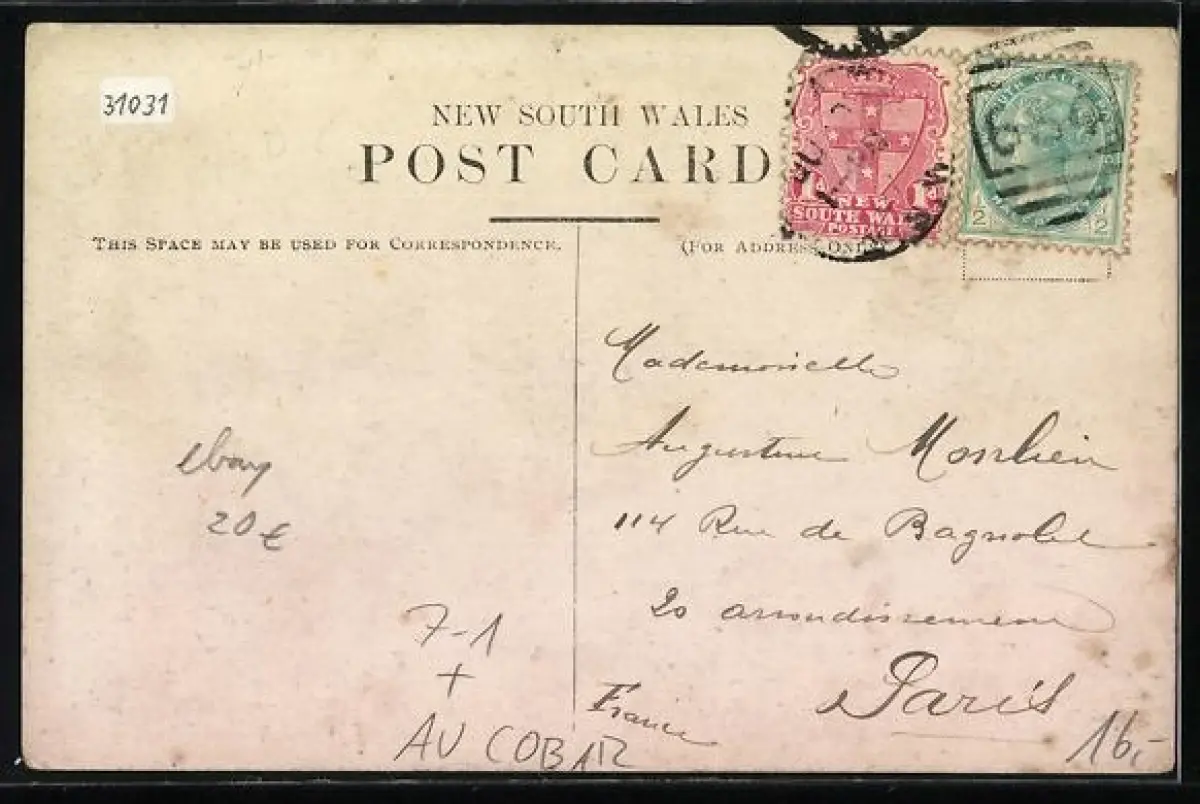 31031
NEW SOUTH WALES
POST CARD
1d 1d
NEW
SOUTH WALES
POSTAGE
2 2
THIS SPACE MAY BE USED FOR CORRESPONDENCE.
(FOR ADDRESS ONLY)
Mademoiselle
Augustine
114 Rue de Bagnolet
20 arrondissement
Paris
France
ebay
20 €
7-1
+
AU COBAR
16,-